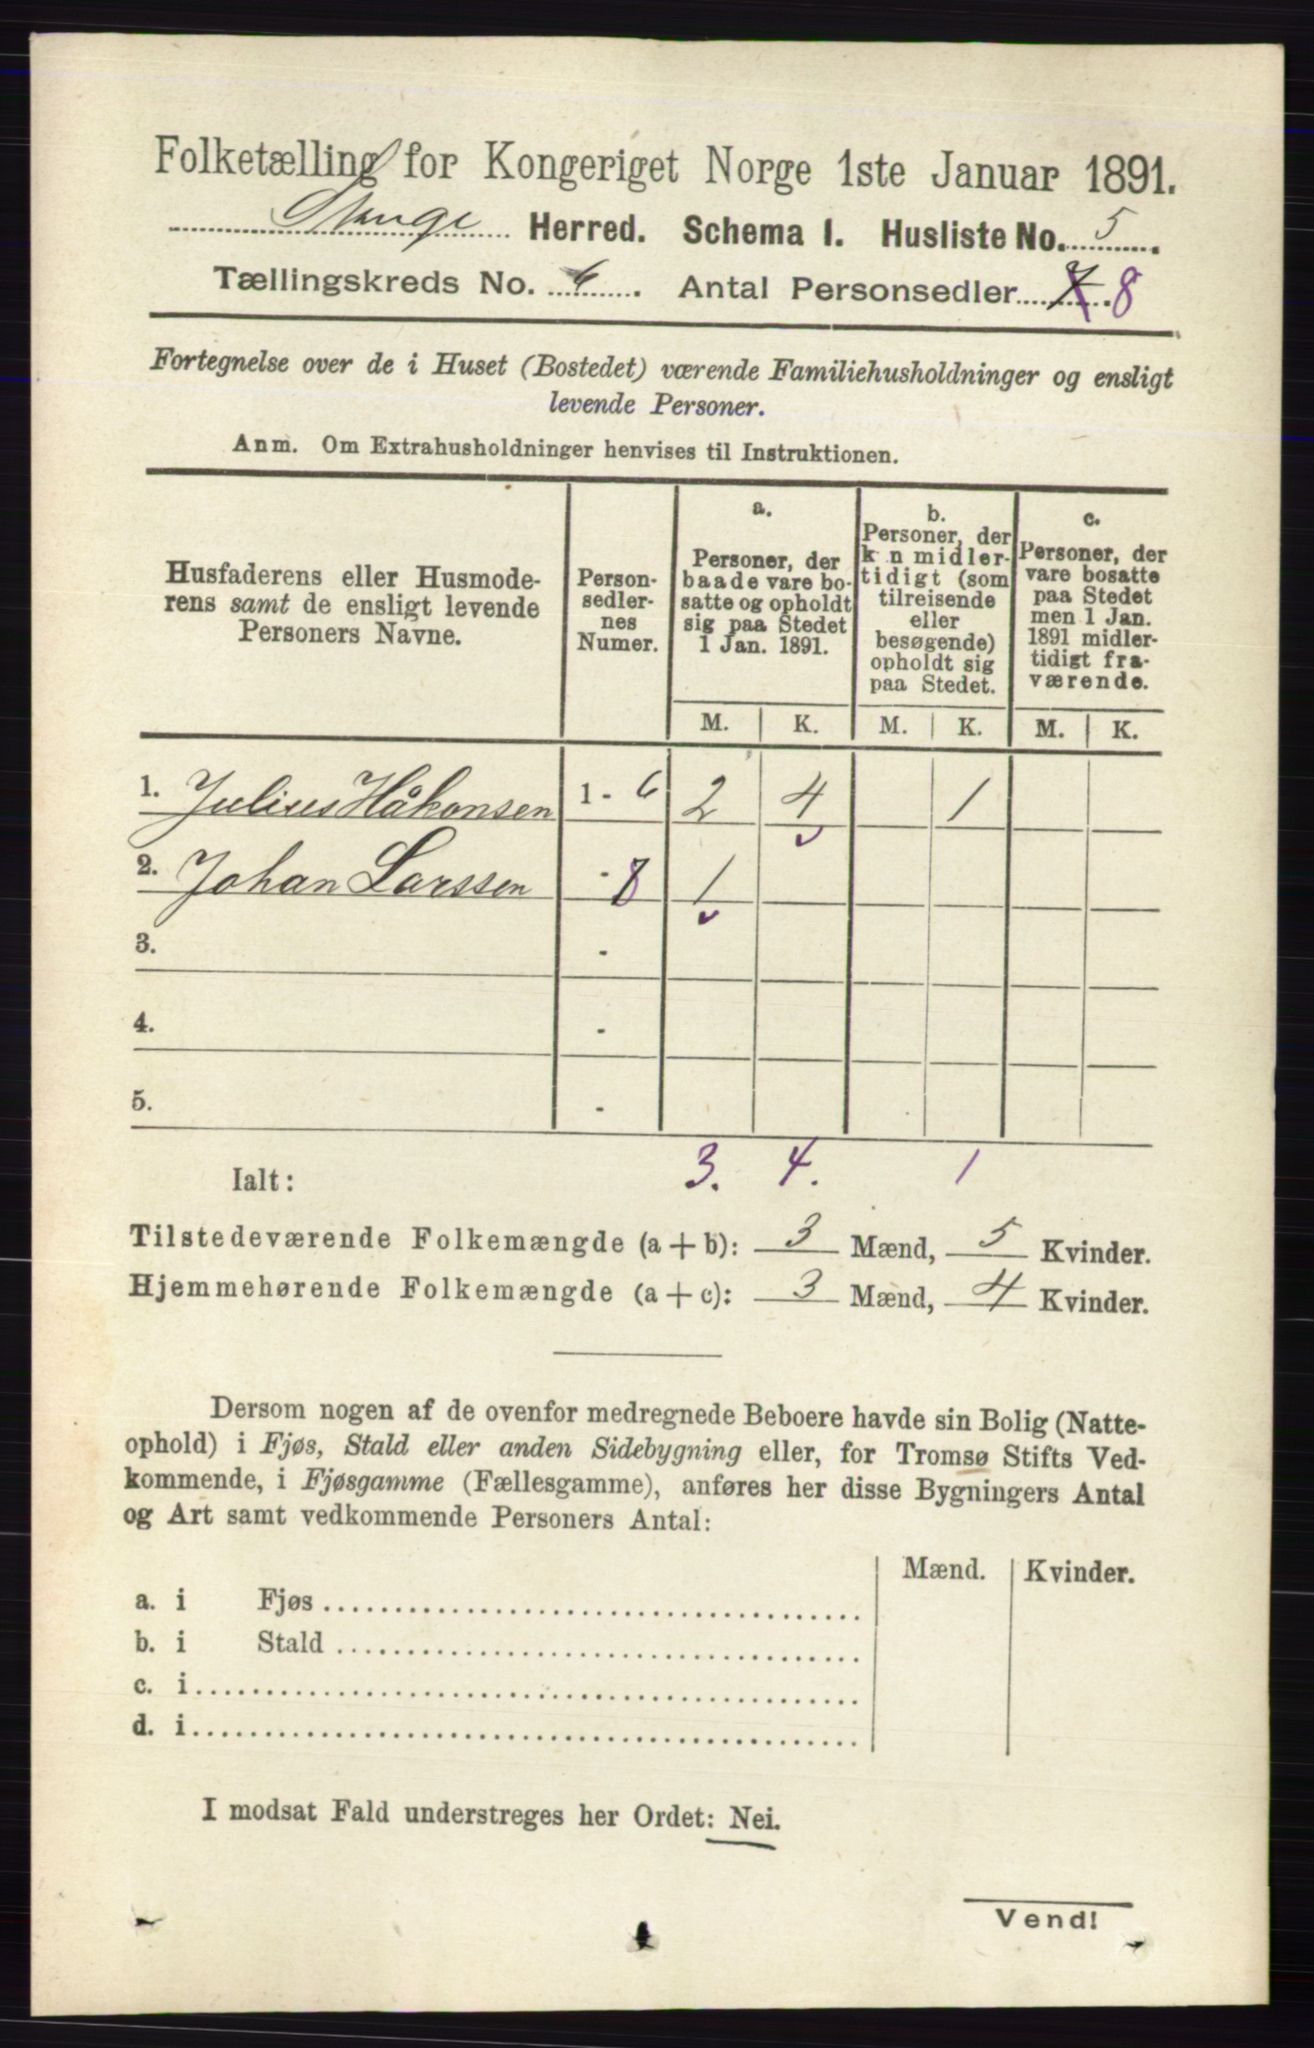 Folketælling for Kongeriget Norge 1ste Januar 1891.
Stange Herred. Schema I. Husliste No. 5.
Tællingskreds No. 6. Antal Personsedler 7. 8
Fortegnelse over de i Huset (Bostedet) værende Familiehusholdninger og ensligt
levende Personer.
Anm. Om Extrahusholdninger henvises til Instruktionen.
Husfaderens eller Husmode-
rens samt de ensligt levende
Personers Navne.
Person-
sedler-
nes
Numer.
a.
Personer, der
baade vare bo-
satte og opholdt
sig paa Stedet
1 Jan. 1891.
b.
Personer, der
k n midler-
tidigt (som
tilreisende
eller
besøgende)
opholdt sig
paa Stedet.
c.
Personer, der
vare bosatte
paa Stedet
men 1 Jan.
1891 midler-
tidigt fra-
værende.
M. K. M. K. M. K.
1. Julius Håkonsen 1 - 6 2 4 1
2. Johan Larssen - 8 1
3. -
4. -
5. -
Ialt: 3. 4. 1
Tilstedeværende Folkemængde (a + b): 3 Mænd, 5 Kvinder.
Hjemmehørende Folkemængde (a + c): 3 Mænd, 4 Kvinder.
Dersom nogen af de ovenfor medregnede Beboere havde sin Bolig (Natte-
ophold) i Fjøs, Stald eller anden Sidebygning eller, for Tromsø Stifts Ved-
kommende, i Fjøsgamme (Fællesgamme), anføres her disse Bygningers Antal
og Art samt vedkommende Personers Antal:
Mænd. Kvinder.
a. i Fjøs
b. i Stald
c. i
d. i
I modsat Fald understreges her Ordet: Nei.
Vend!